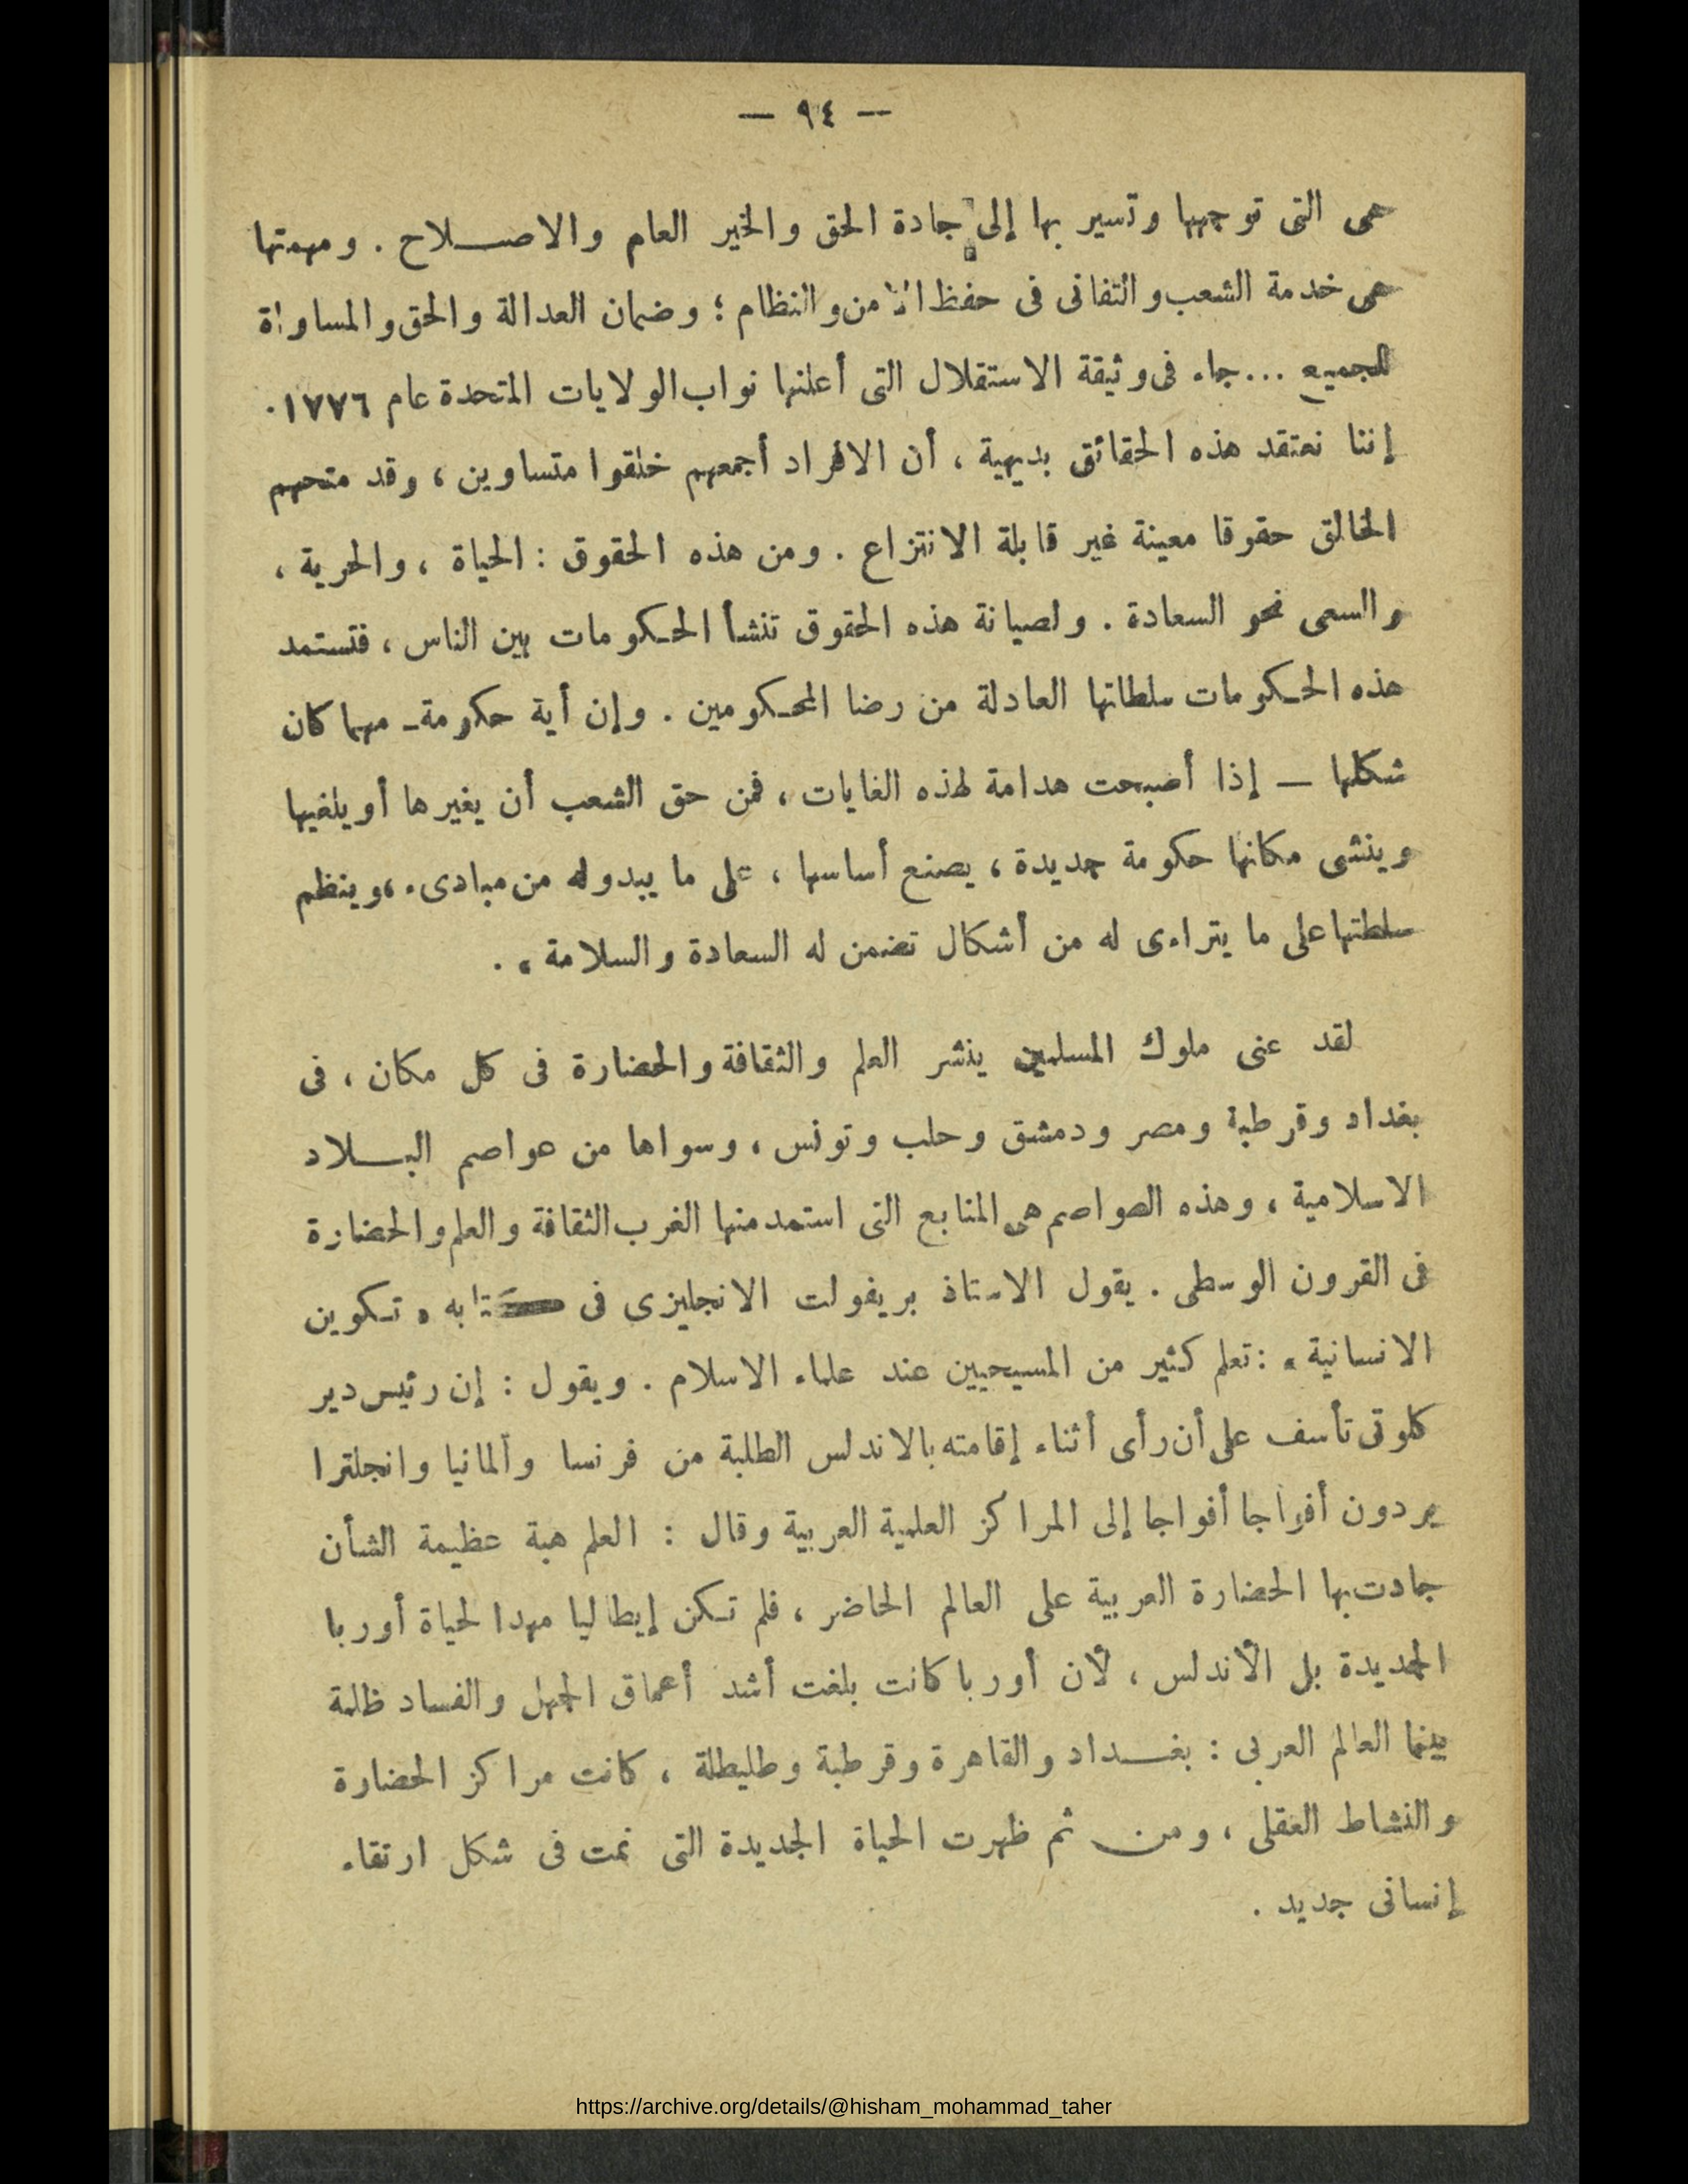 — ٩٤ —
هى التى توجهها وتسير بها إلى جادة الحق والخير العام والاصـــلاح . ومهمتها
هى خدمة الشعب والتفانى فى حفظ الأمن والنظام ؛ وضمان العدالة والحق والمساواة
للجميع ... جاء فى وثيقة الاستقلال التى أعلنها نواب الولايات المتحدة عام ١٧٧٦ .
إننا نعتقد هذه الحقائق بديهية ، أن الافراد أجمعهم خلقوا متساوين ، وقد منحهم
الخالق حقوقا معينة غير قابلة الانتزاع . ومن هذه الحقوق : الحياة ، والحرية ،
والسعى نحو السعادة . ولصيانة هذه الحقوق تنشأ الحكومات بين الناس ، فتستمد
هذه الحكومات سلطاتها العادلة من رضا المحكومين . وإن أية حكومة ـ مهما كان
شكلها — إذا أصبحت هدامة لهذه الغايات ، فمن حق الشعب أن يغيرها أو يلغيها
وينشى مكانها حكومة جديدة ، يصنع أساسها ، على ما يبدو له من مبادىء ، وينظم
سلطتها على ما يتراءى له من أشكال تضمن له السعادة والسلامة » .
لقد عنى ملوك المسلمين ينشر العلم والثقافة والحضارة فى كل مكان ، فى
بغداد وقرطبة ومصر ودمشق وحلب وتونس ، وسواها من عواصم البـــلاد
الاسلامية ، وهذه العواصم هى المنابع التى استمد منها الغرب الثقافة والعلم والحضارة
فى القرون الوسطى . يقول الاستاذ بريفولت الانجليزى فى كتابه « تكوين
الانسانية » : تعلم كثير من المسيحيين عند علماء الاسلام . ويقول : إن رئيس دير
كلوتى تأسف على أن رأى أثناء إقامته بالاندلس الطلبة من فرنسا وألمانيا وانجلترا
يردون أفواجا أفواجا إلى المراكز العلمية العربية وقال : العلم هبة عظيمة الشأن
جادت بها الحضارة العربية على العالم الحاضر ، فلم تكن إيطاليا مهدا لحياة أوربا
الجديدة بل الأندلس ، لأن أوربا كانت بلغت أشد أعماق الجهل والفساد ظلمة
بينما العالم العربى : بغــداد والقاهرة وقرطبة وطليطلة ، كانت مراكز الحضارة
والنشاط العقلى ، ومن ثم ظهرت الحياة الجديدة التى نمت فى شكل ارتقاء
إنسانى جديد .
https://archive.org/details/@hisham_mohammad_taher